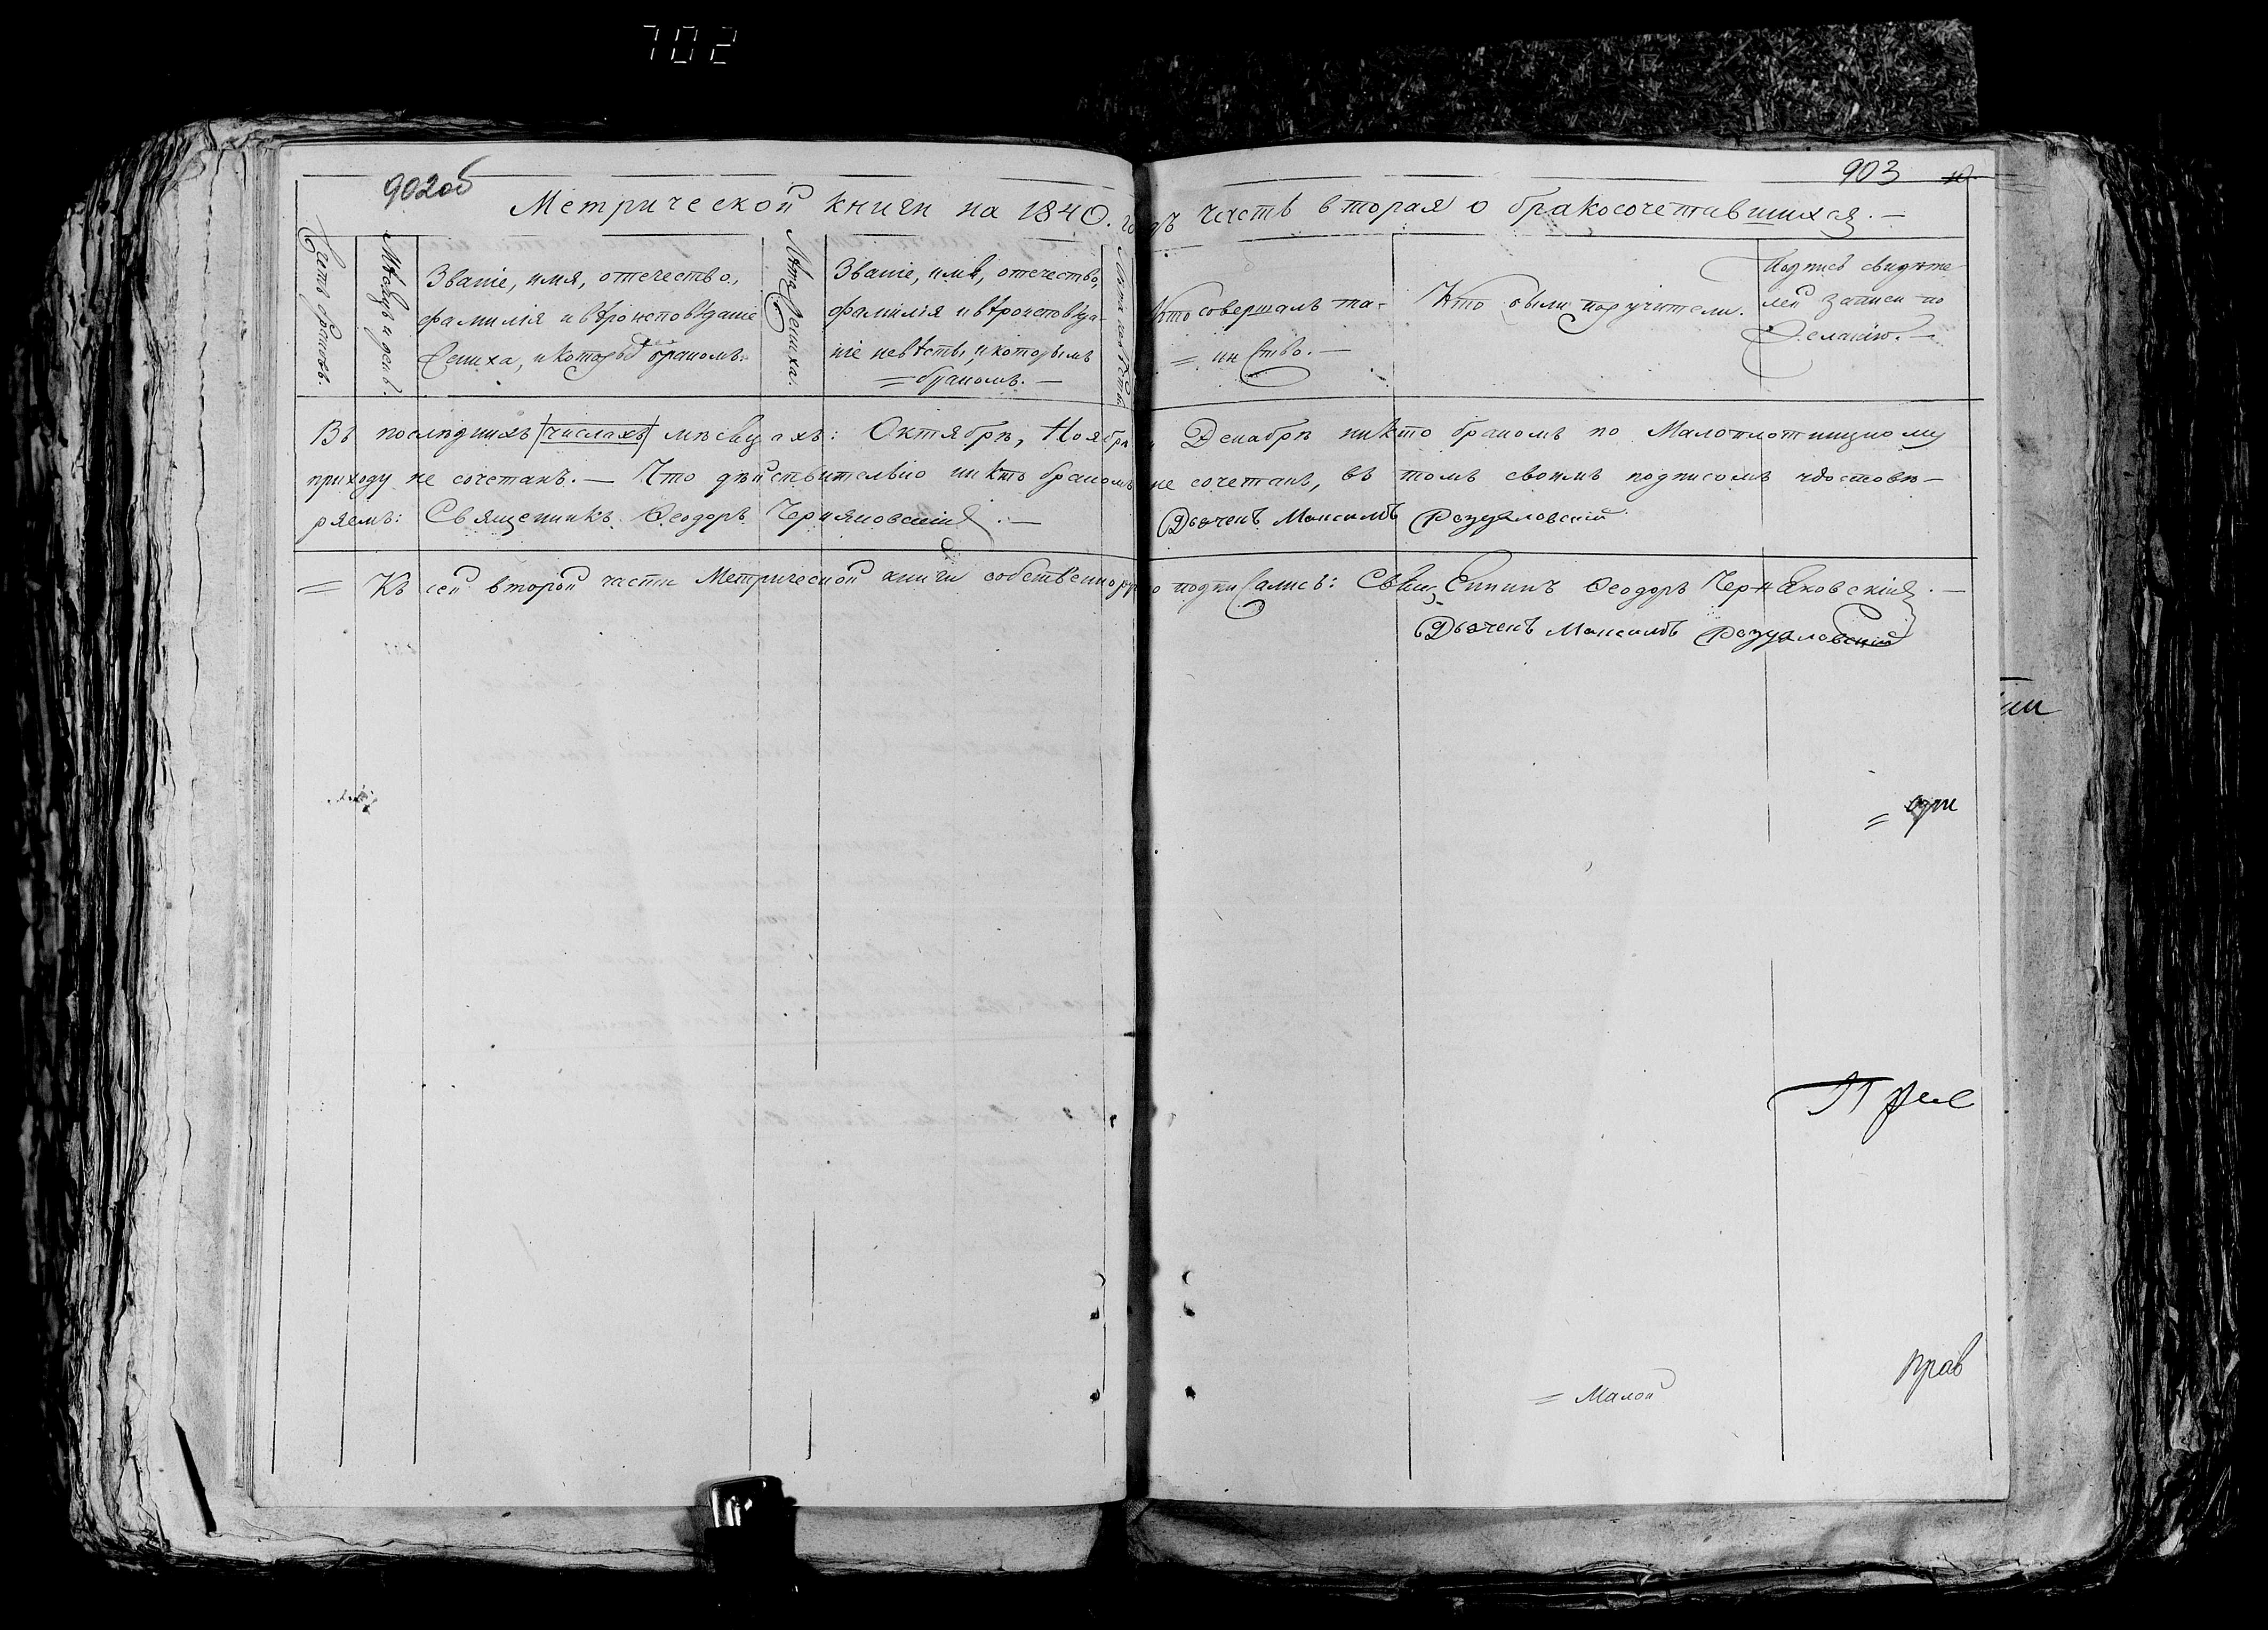 702
902об
903
Метрической книги на 1840. годъ часть вторая о бракосочетавшихся. —
Счетъ браковъ.
Мѣсяцъ и день.
Званіе, имя, отечество,
фамилія и вѣроисповѣданіе
Жениха, и которымъ бракомъ.
Лѣта Жениха.
Званіе, имя, отечество,
фамилія и вѣроисповѣда-
ніе невѣсты, и которымъ
= бракомъ. —
Лѣта невѣсты
Кто совершалъ та-
= инство. —
Кто были поручители.
Подпись свидѣте
лей записи по
Желанію. —
Въ послѣднихъ (числахъ) мѣсяцахъ: Октябрѣ, Ноябрѣ и Декабрѣ никто бракомъ по Малоплотницкому
приходу не сочетанъ. — Что дѣйствительно никто бракомъ не сочетанъ, въ томъ своимъ подписомъ удостовѣ-
ряемъ: Священникъ Феодоръ Черняковскій. — Дьячекъ Максимъ
= Къ сей второй части Метрической книги собственноручно подписались: Священникъ Феодоръ Черняковскій. —
Дьячекъ Максимъ
= Малой
прав